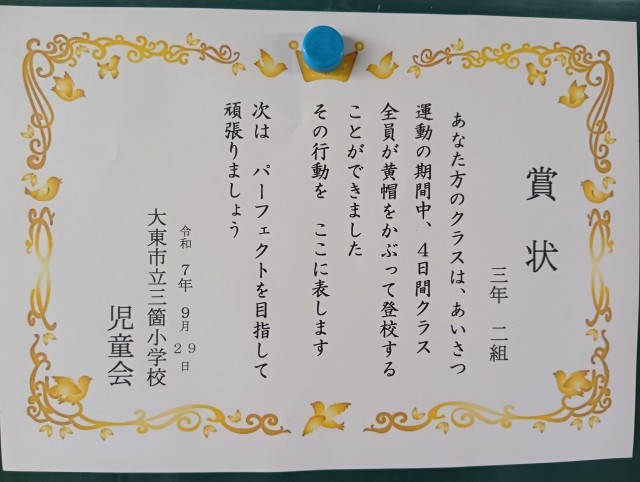 賞状
三年 二組
あなた方のクラスは、あいさつ
運動の期間中、4日間クラス
全員が黄帽をかぶって登校する
ことができました
その行動を ここに表します
次は パーフェクトを目指して
頑張りましょう
令和 7年 9月 29日
大東市立三箇小学校
児童会